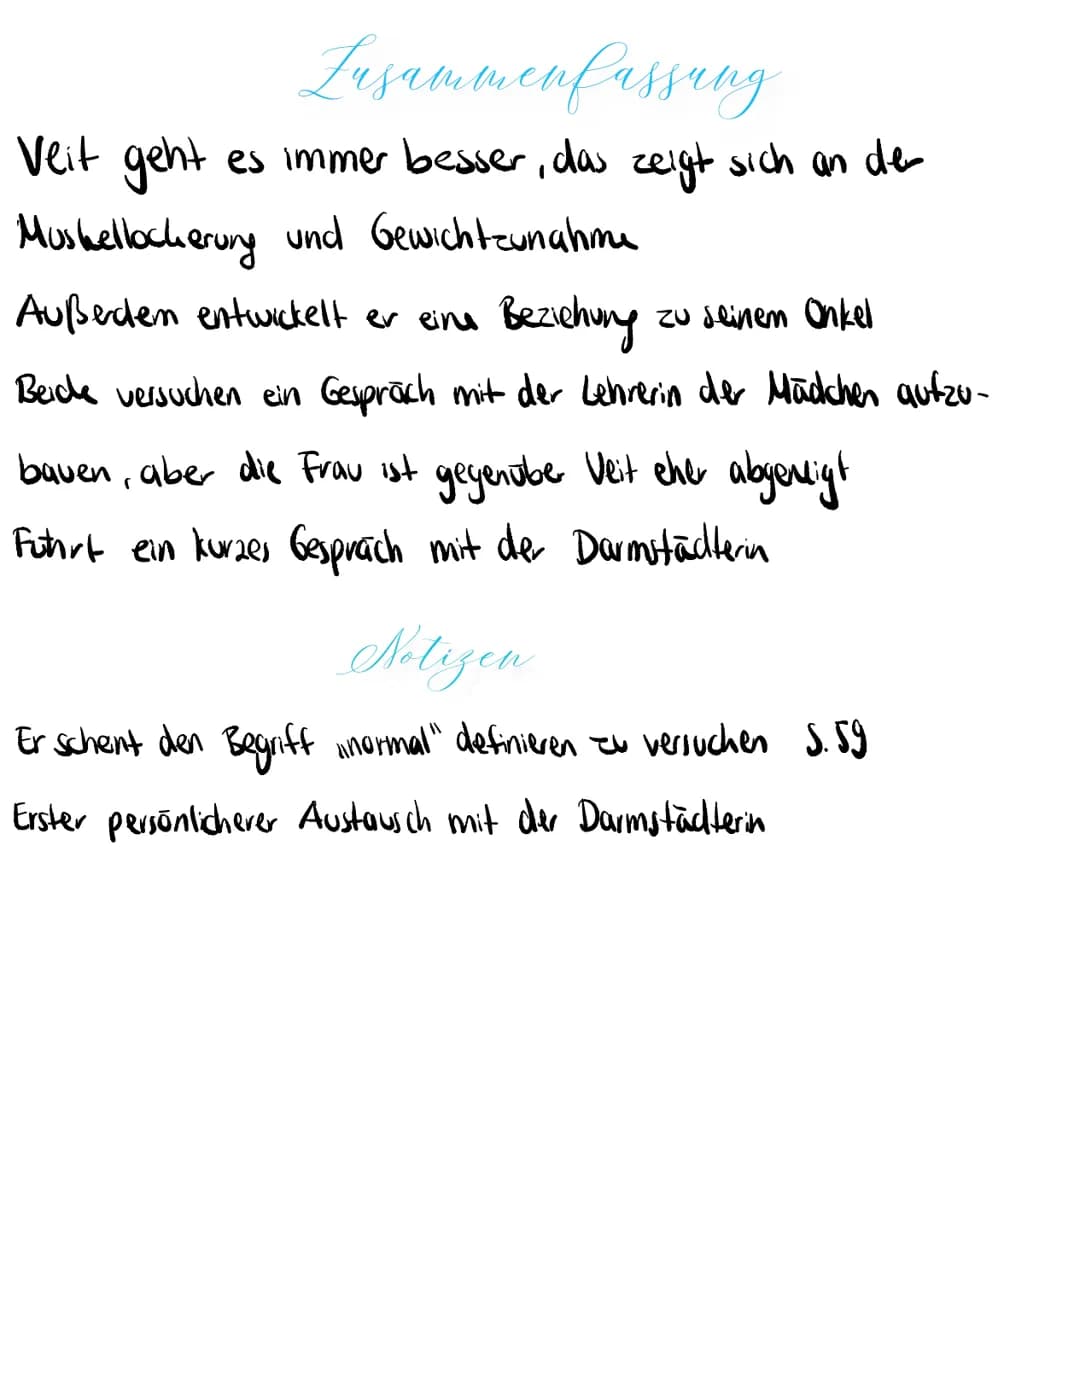 Zusammenfassung
Veit geht es immer besser, das zeigt sich an der
Muskellockerung und Gewichtzunahme
Außerdem entwickelt er eine Beziehung zu seinem Onkel
Beide versuchen ein Gespräch mit der Lehrerin der Mädchen aufzu-
bauen, aber die Frau ist gegenüber Veit eher abgeneigt
Führt ein kurzes Gespräch mit der Darmstädterin
Notizen
Er scheint den Begriff „normal" definieren zu versuchen S. 59
Erster persönlicherer Austausch mit der Darmstädterin